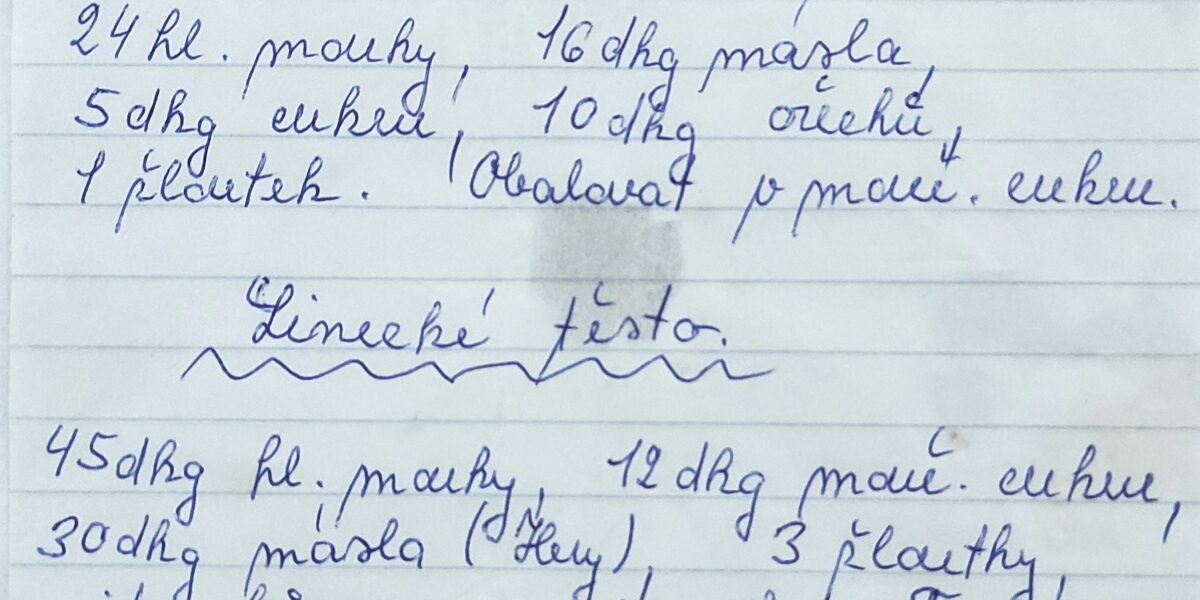 24 hl. mouky, 16 dkg másla,
5 dkg cukru, 10 dkg ořechů,
1 žloutek. Obalovat v mouč. cukru.
Linecké těsto.
45 dkg hl. mouky, 12 dkg mouč. cukru,
30 dkg másla (Hery), 3 žloutky,